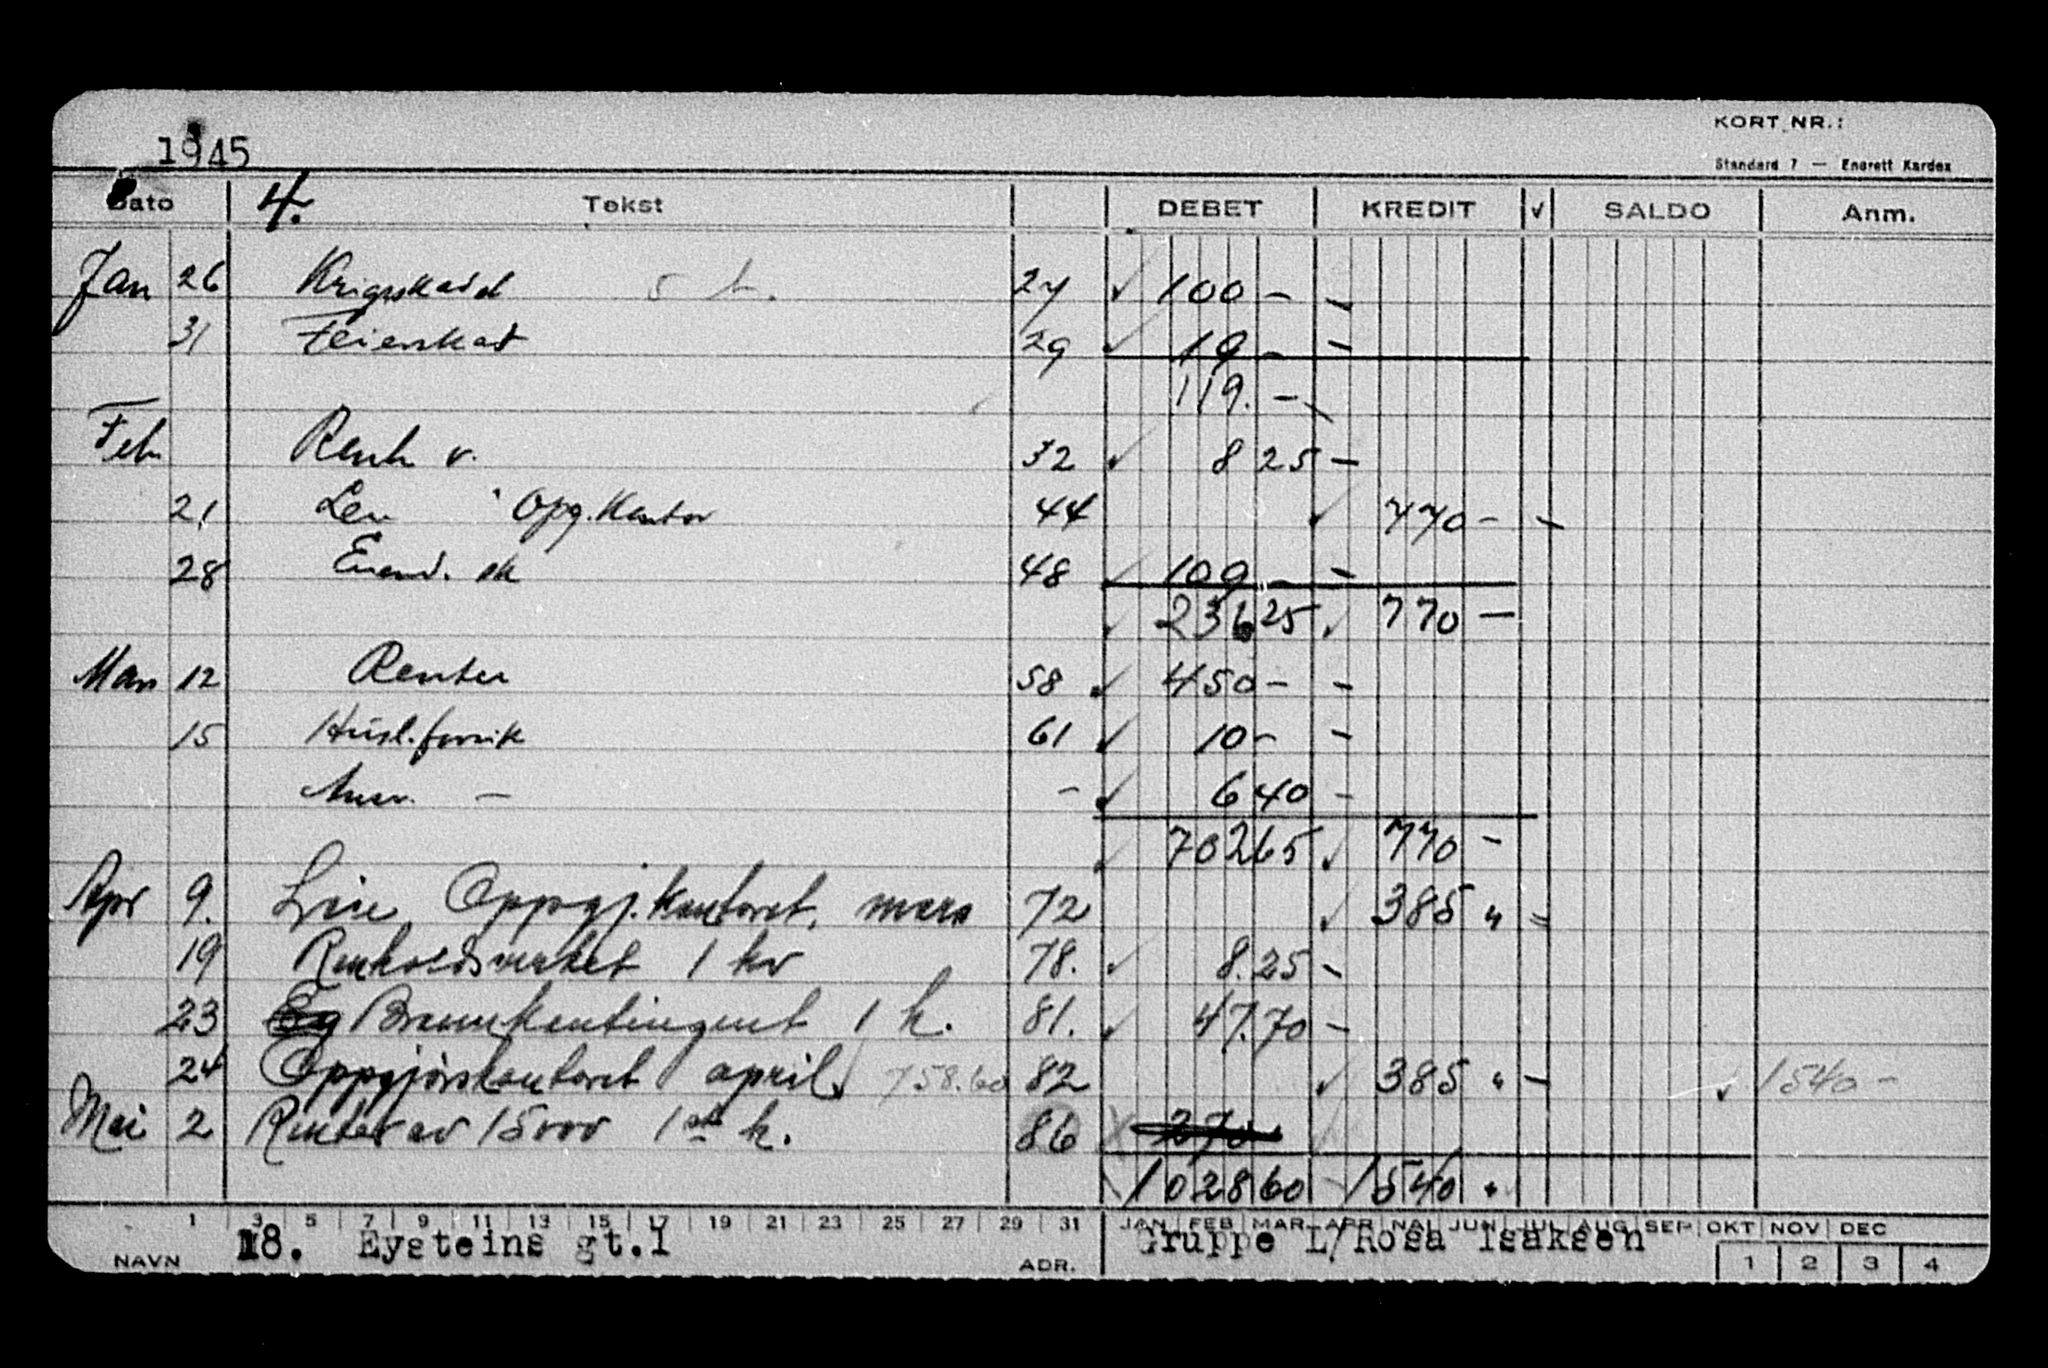 1945
KORT NR.:
Standard 7 — Enerett Kardex
Dato 4. Tekst DEBET KREDIT √ SALDO Anm.
Jan 26 Krigsskadet 5 t. 27 √ 100 - -
31 Feierskat 29 √ 19 - -
119. - -
Feb Renh v. 32 √ 8 25 -
21 Leie Opg.kontor 44 √ 770 - -
28 Eiend. sk 48 √ 109 - -
√ 236 25 √ 770 -
Mars 12 Renter 58 √ 450 - -
15 Husl.forsik 61 √ 10 - -
Ansv. - - √ 6 40 -
√ 702 65 √ 770 -
Apr 9. Leie Oppgj.kontoret, mars 72 √ 385 " =
19 Renholdsverket 1 kv 78. √ 8.25 -
23 Brannkontingent 1 h. 81. √ 47.70 -
24 Oppgjørskontoret april √ 758.60 82 √ 385 " - √ 1540 -
Mai 2 Renter av 15000 1ste h. 86 X 270
1028 60 - 1540 "
1 3 5 7 9 11 13 15 17 19 21 23 25 27 29 31 JAN FEB MAR APR MAI JUN JUL AUG SEP OKT NOV DEC
NAVN 18. Eysteins gt.1 ADR. Gruppe L/Rosa Isaksen
1 2 3 4